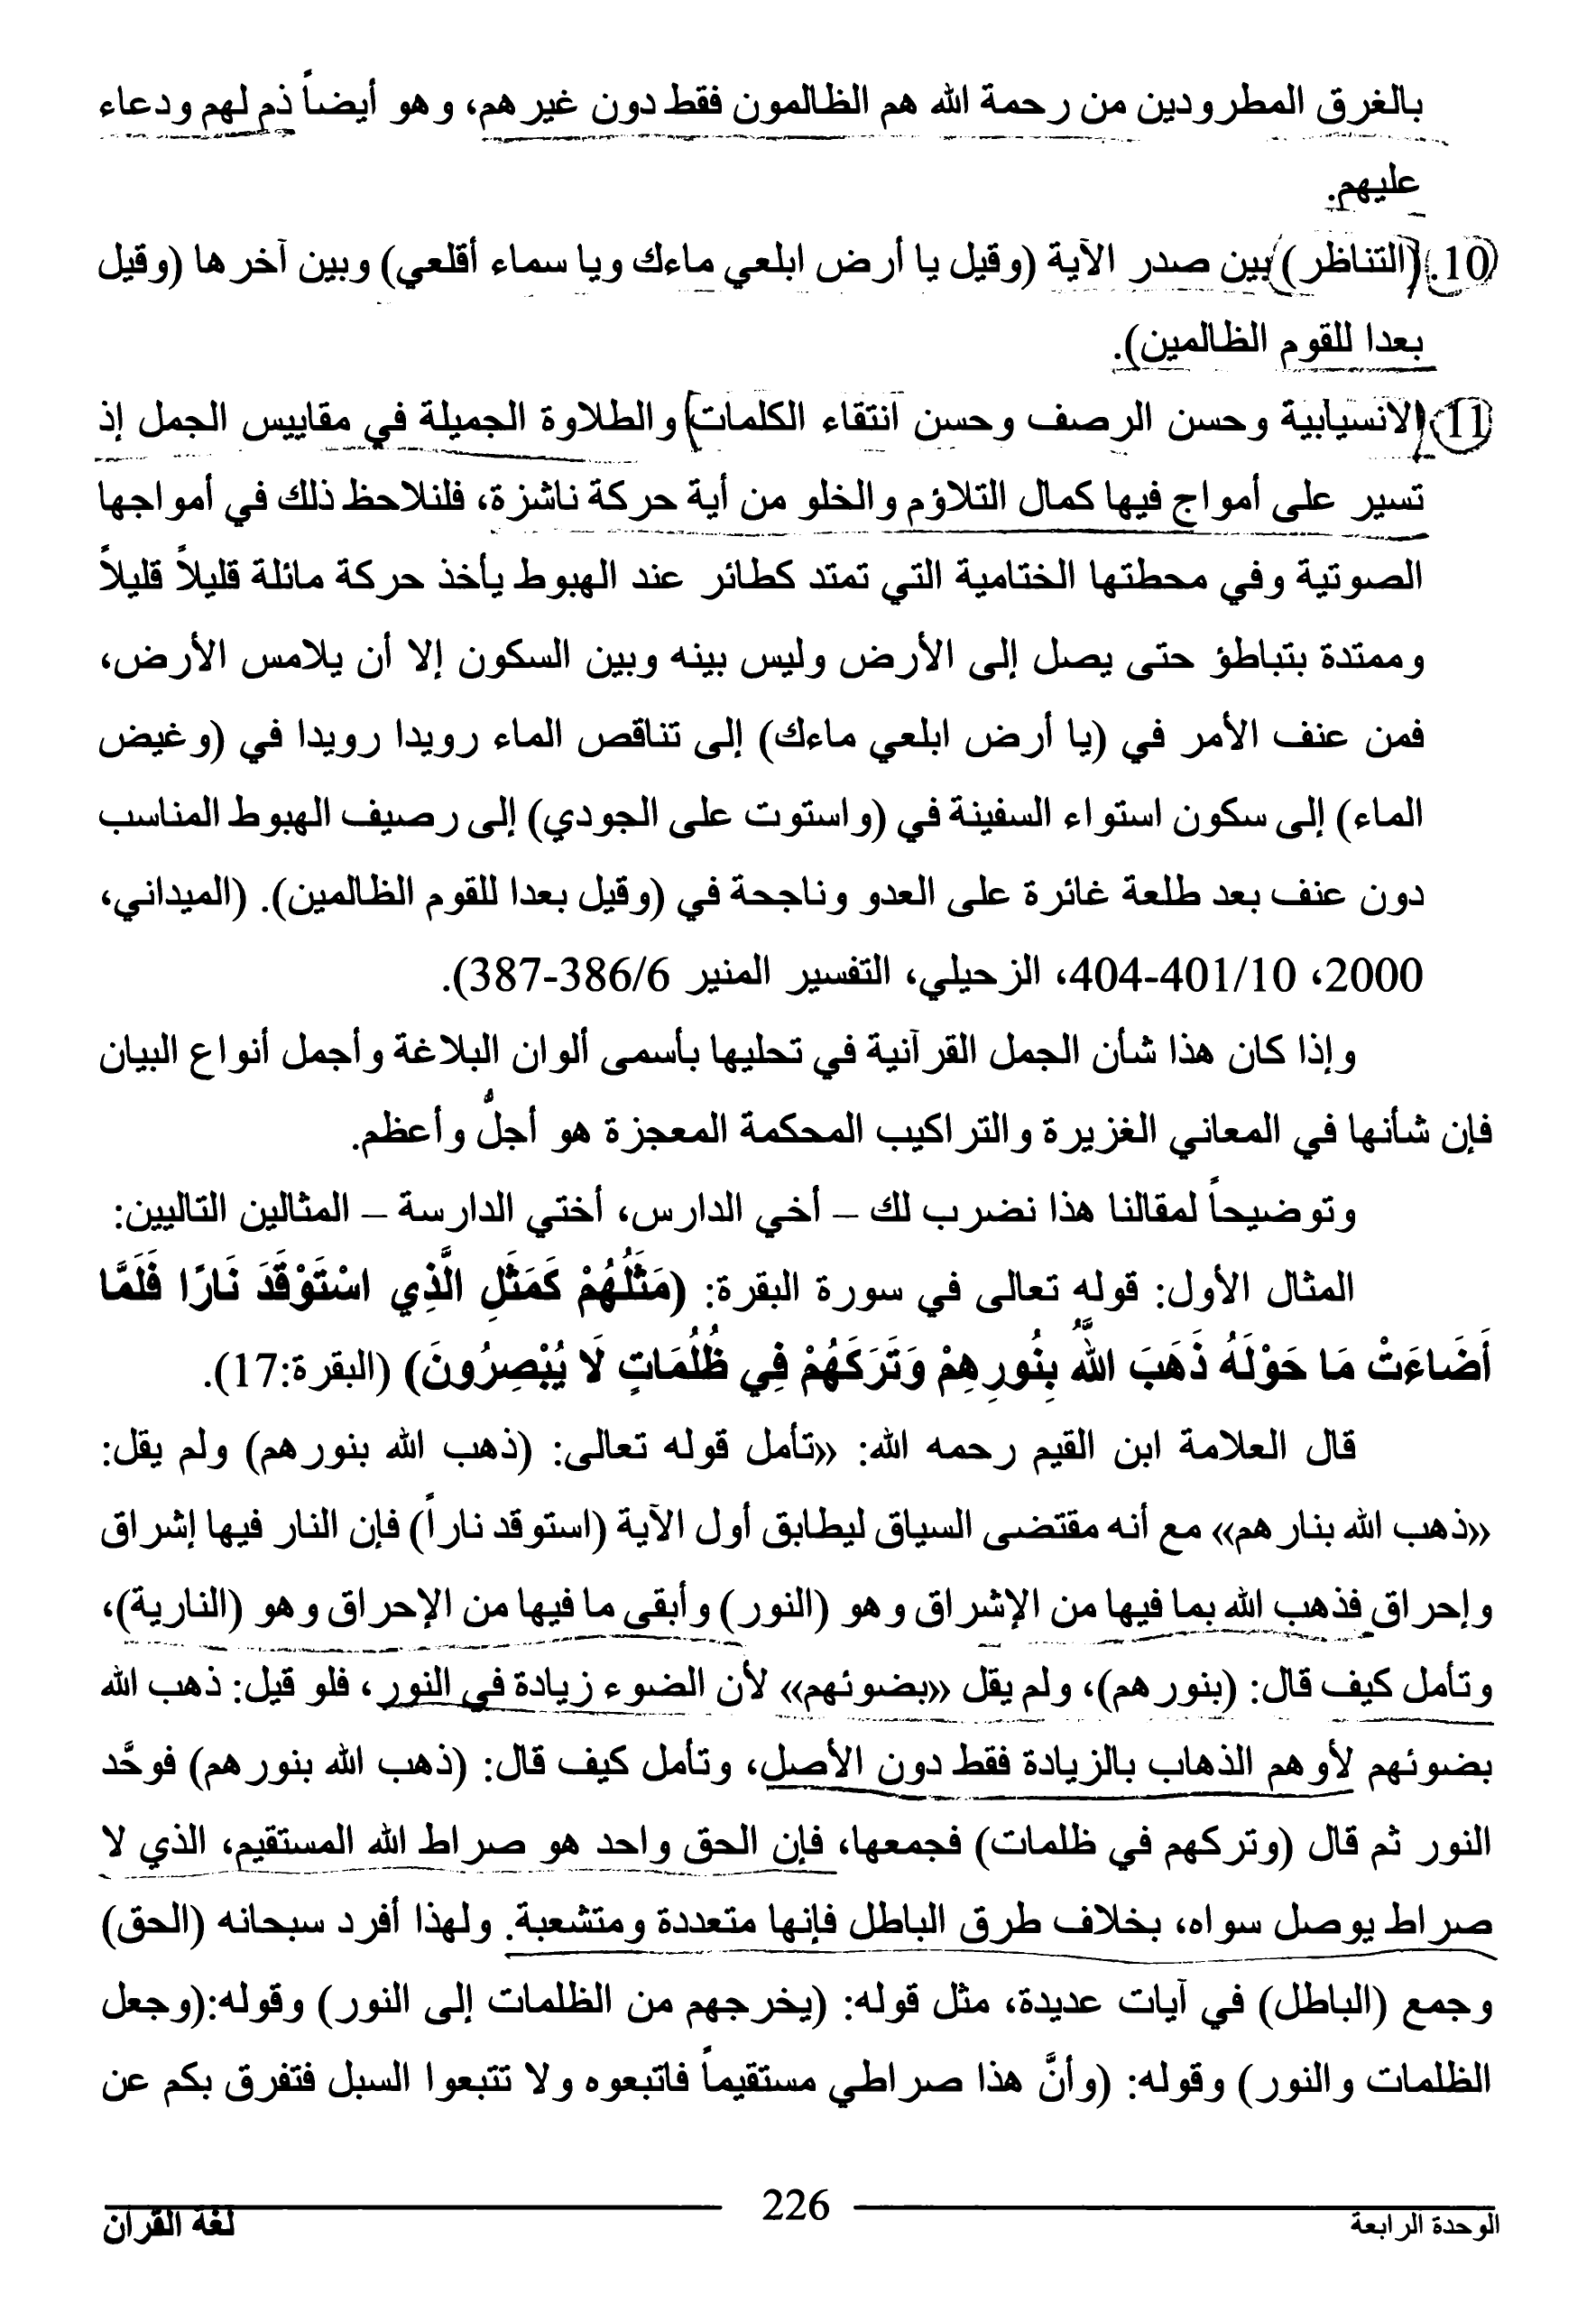 بالغرق المطرودين من رحمة الله هم الظالمون فقط دون غيرهم، وهو أيضاً ذم لهم ودعاء
عليهم.
10. (التناظر) بين صدر الآية (وقيل يا أرض ابلعي ماءك ويا سماء أقلعي) وبين آخرها (وقيل
بعدا للقوم الظالمين).
11 الانسيابية وحسن الرصف وحسن انتقاء الكلمات والطلاوة الجميلة في مقاييس الجمل إذ
تسير على أمواج فيها كمال التلاؤم والخلو من أية حركة ناشزة، فلنلاحظ ذلك في أمواجها
الصوتية وفي محطتها الختامية التي تمتد كطائر عند الهبوط يأخذ حركة مائلة قليلاً قليلاً
وممتدة بتباطؤ حتى يصل إلى الأرض وليس بينه وبين السكون إلا أن يلامس الأرض،
فمن عنف الأمر في (يا أرض ابلعي ماءك) إلى تناقص الماء رويدا رويدا في (وغيض
الماء) إلى سكون استواء السفينة في (واستوت على الجودي) إلى رصيف الهبوط المناسب
دون عنف بعد طلعة غائرة على العدو وناجحة في (وقيل بعدا للقوم الظالمين). (الميداني،
2000، 401/10-404، الزحيلي، التفسير المنير 386/6-387).
وإذا كان هذا شأن الجمل القرآنية في تحليها بأسمى ألوان البلاغة وأجمل أنواع البيان
فإن شأنها في المعاني الغزيرة والتراكيب المحكمة المعجزة هو أجلُّ وأعظم.
وتوضيحاً لمقالنا هذا نضرب لك – أخي الدارس، أختي الدارسة – المثالين التاليين:
المثال الأول: قوله تعالى في سورة البقرة: (مَثَلُهُمْ كَمَثَلِ الَّذِي اسْتَوْقَدَ نَارًا فَلَمَّا
أَضَاءَتْ مَا حَوْلَهُ ذَهَبَ اللَّهُ بِنُورِهِمْ وَتَرَكَهُمْ فِي ظُلُمَاتٍ لَا يُبْصِرُونَ) (البقرة:17).
قال العلامة ابن القيم رحمه الله: «تأمل قوله تعالى: (ذهب الله بنورهم) ولم يقل:
«ذهب الله بنارهم» مع أنه مقتضى السياق ليطابق أول الآية (استوقد ناراً) فإن النار فيها إشراق
وإحراق فذهب الله بما فيها من الإشراق وهو (النور) وأبقى ما فيها من الإحراق وهو (النارية)،
وتأمل كيف قال: (بنورهم)، ولم يقل «بضوئهم» لأن الضوء زيادة في النور، فلو قيل: ذهب الله
بضوئهم لأوهم الذهاب بالزيادة فقط دون الأصل، وتأمل كيف قال: (ذهب الله بنورهم) فوحَّد
النور ثم قال (وتركهم في ظلمات) فجمعها، فإن الحق واحد هو صراط الله المستقيم، الذي لا
صراط يوصل سواه، بخلاف طرق الباطل فإنها متعددة ومتشعبة. ولهذا أفرد سبحانه (الحق)
وجمع (الباطل) في آيات عديدة، مثل قوله: (يخرجهم من الظلمات إلى النور) وقوله:(وجعل
الظلمات والنور) وقوله: (وأنَّ هذا صراطي مستقيماً فاتبعوه ولا تتبعوا السبل فتفرق بكم عن
الوحدة الرابعة 226 لغة القرآن